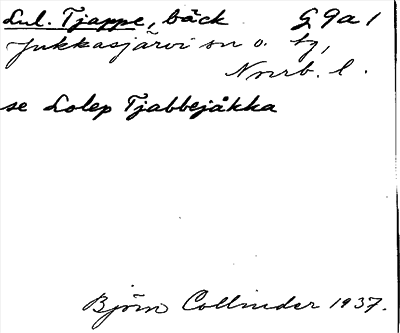 Lul. Tjappe, bäck G 9a 1
Jukkasjärvi sn o. tg,
Norrb. l.
se Lolep Tjabbejåkka
Björn Collinder 1937.